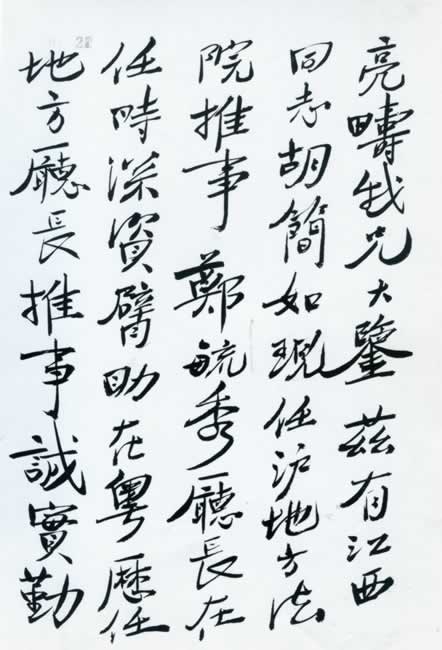 亮疇我兄大鑒茲有江西
同志胡簡如現任沪地方法
院推事鄭毓秀廳長在
任時深資臂助在粵歷任
地方廳長推事誠實勤